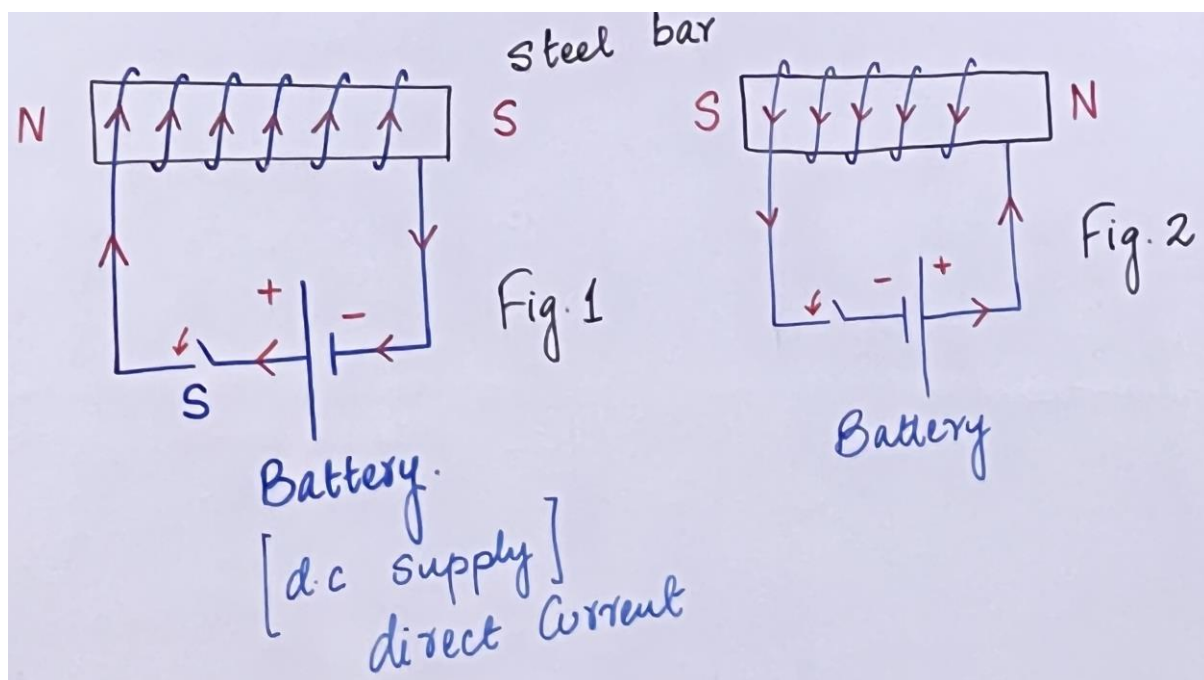 steel bar
N
S
S
N
+
-
Fig. 1
S
-
+
Fig. 2
Battery.
[d.c supply]
direct Current
Battery